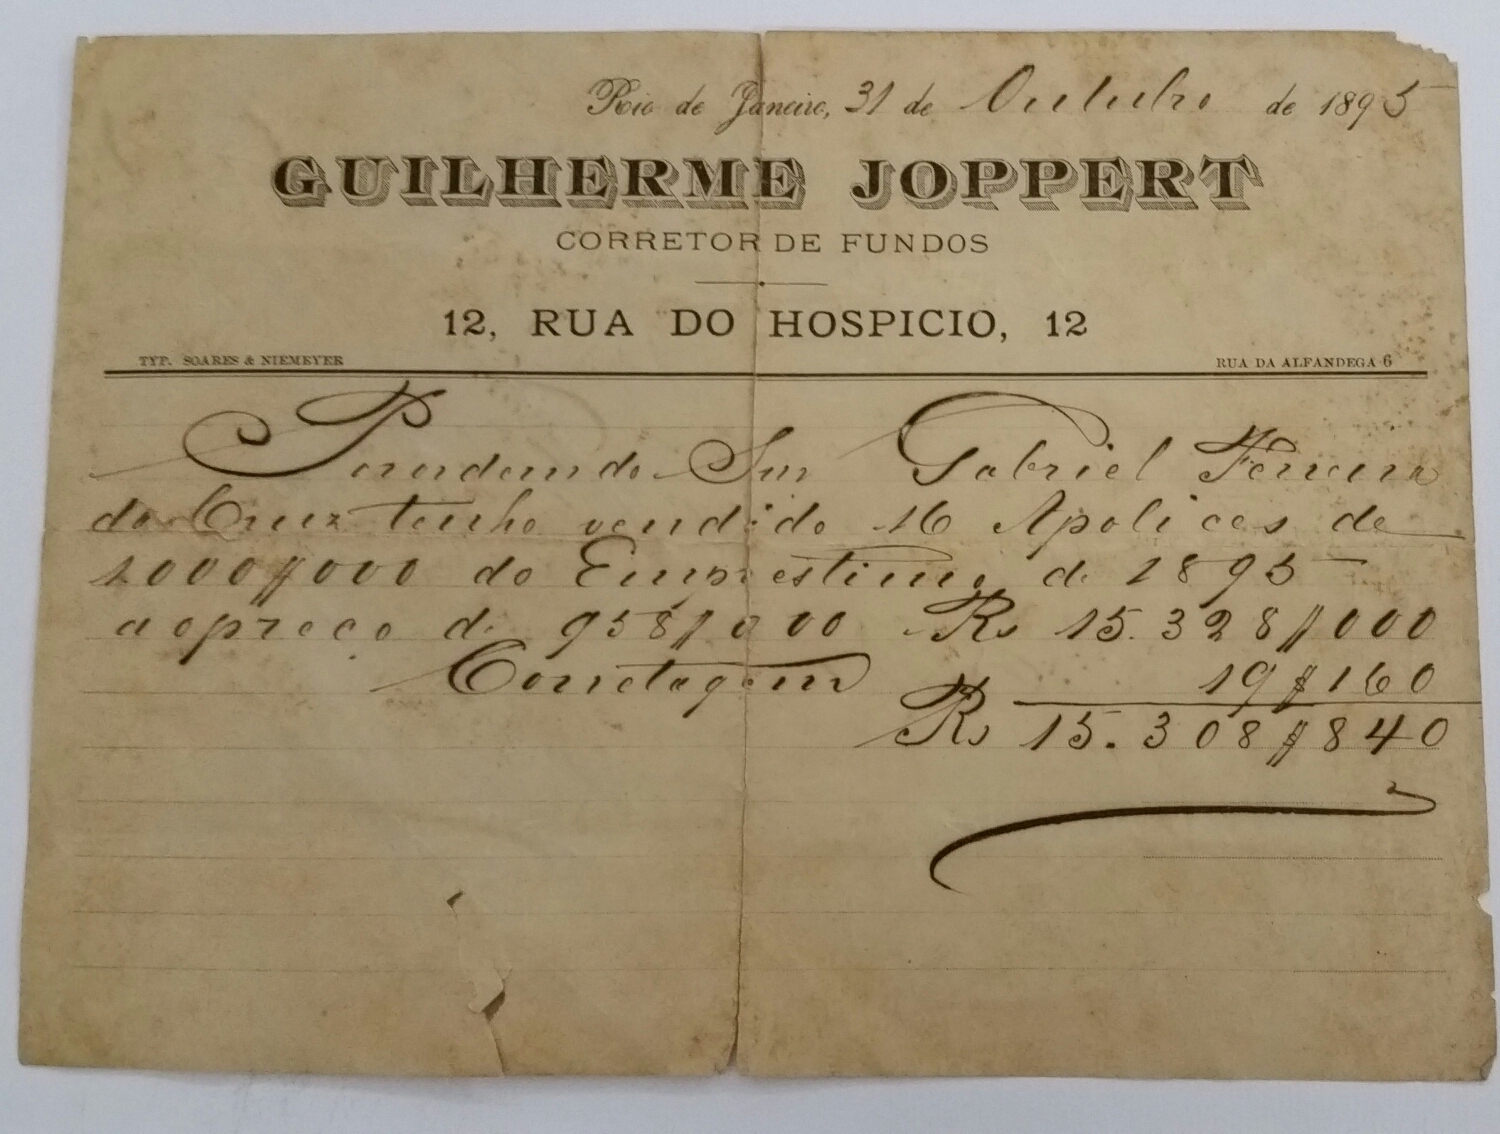 Rio de Janeiro, 31 de Outubro de 1895
GUILHERME JOPPERT
CORRETOR DE FUNDOS
12, RUA DO HOSPICIO, 12
TYP. SOARES & NIEMEYER RUA DA ALFANDEGA 6
Por ordem do Snr Gabriel Ferreira
da Cruz tenho vendido 16 Apolices de
1000$000 do Emprestimo de 1895
ao preço de 958$000 Rs 15.328$000
Corretagem 19$160
Rs 15.308$840